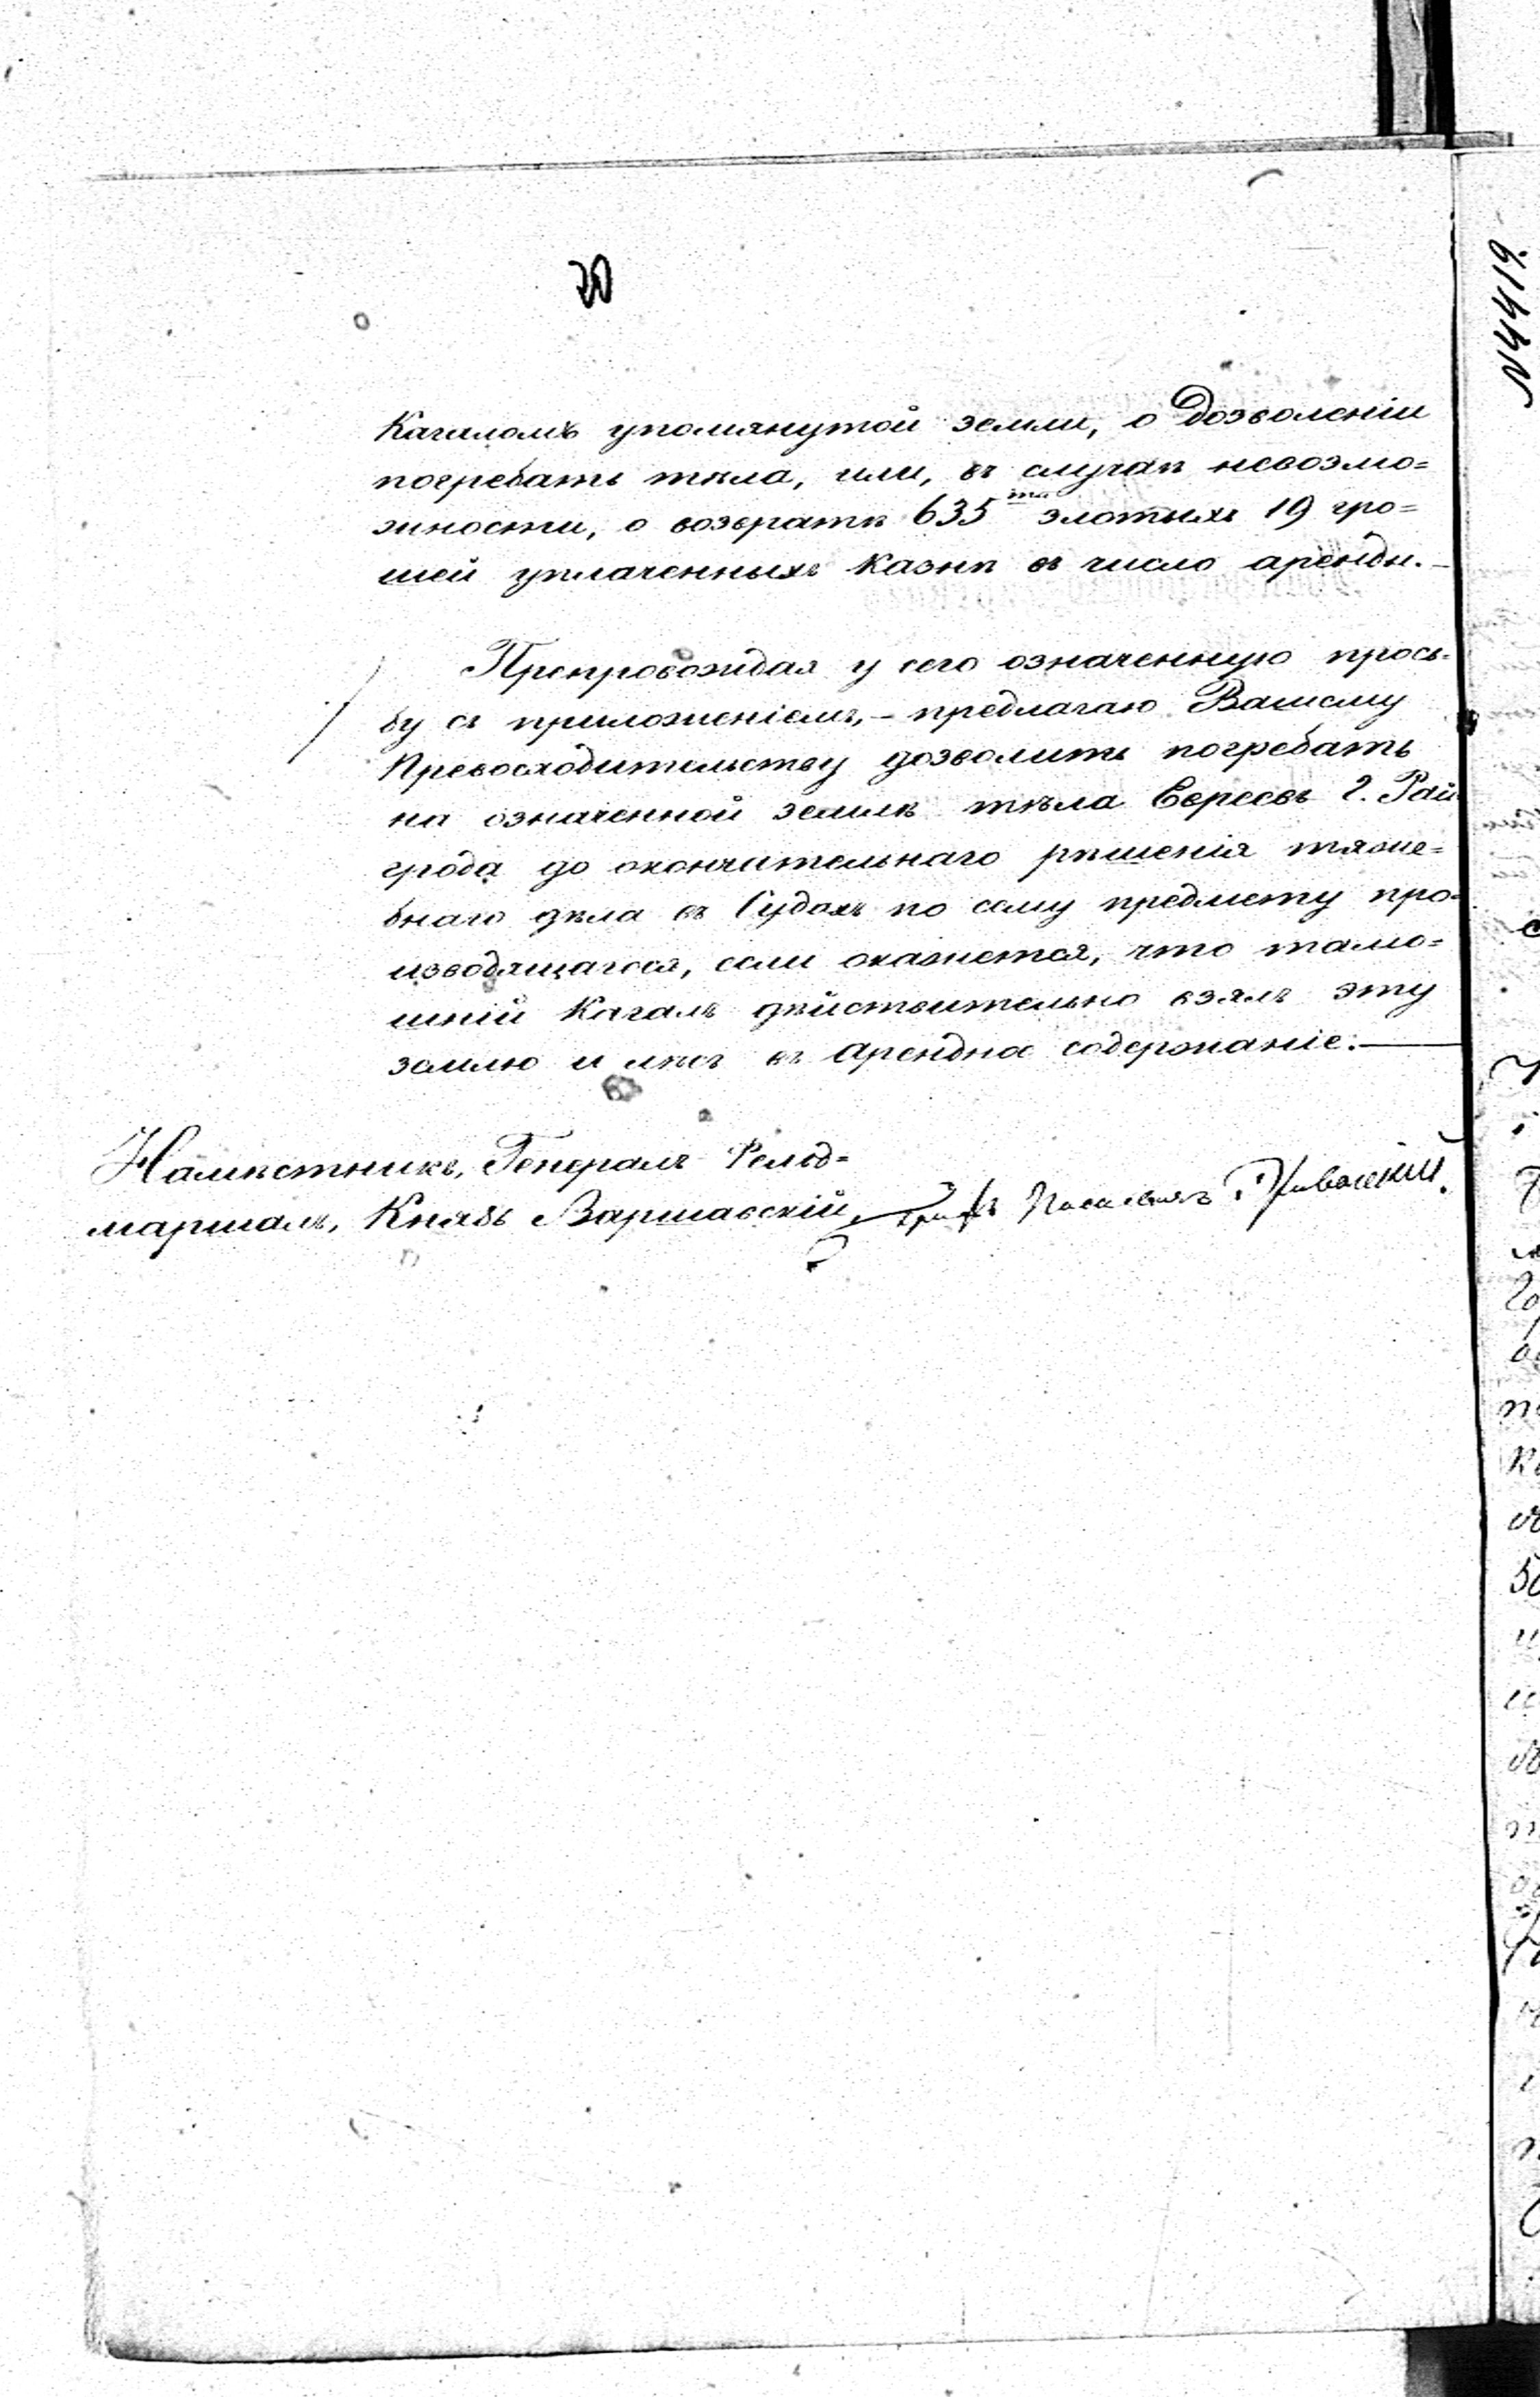 20
Кагаломъ упомянутой земли, о дозволеніи
погребать тѣла, или, въ случаѣ невозмо=
жности, о возвратѣ 635ти злотыхъ 19 гро=
шей уплаченныхъ Казнѣ въ число аренды.—
Препровождая у сего означенную прось=
бу съ приложеніемъ,— предлагаю Вашему
Превосходительству дозволить погребать
на означенной землѣ тѣла Евреевъ г. Рай
грода до окончательнаго рѣшенія тяже=
бнаго дѣла въ Судахъ по сему предмету про=
изводящагося, если окажется, что тамо=
шній Кагалъ дѣйствительно взялъ эту
землю и лѣсъ въ арендное содержаніе.—
Намѣстникъ, Генералъ Фельд=
маршалъ, Князь Варшавскій, Графъ Паскевичъ Эриванскій.
№ 4419